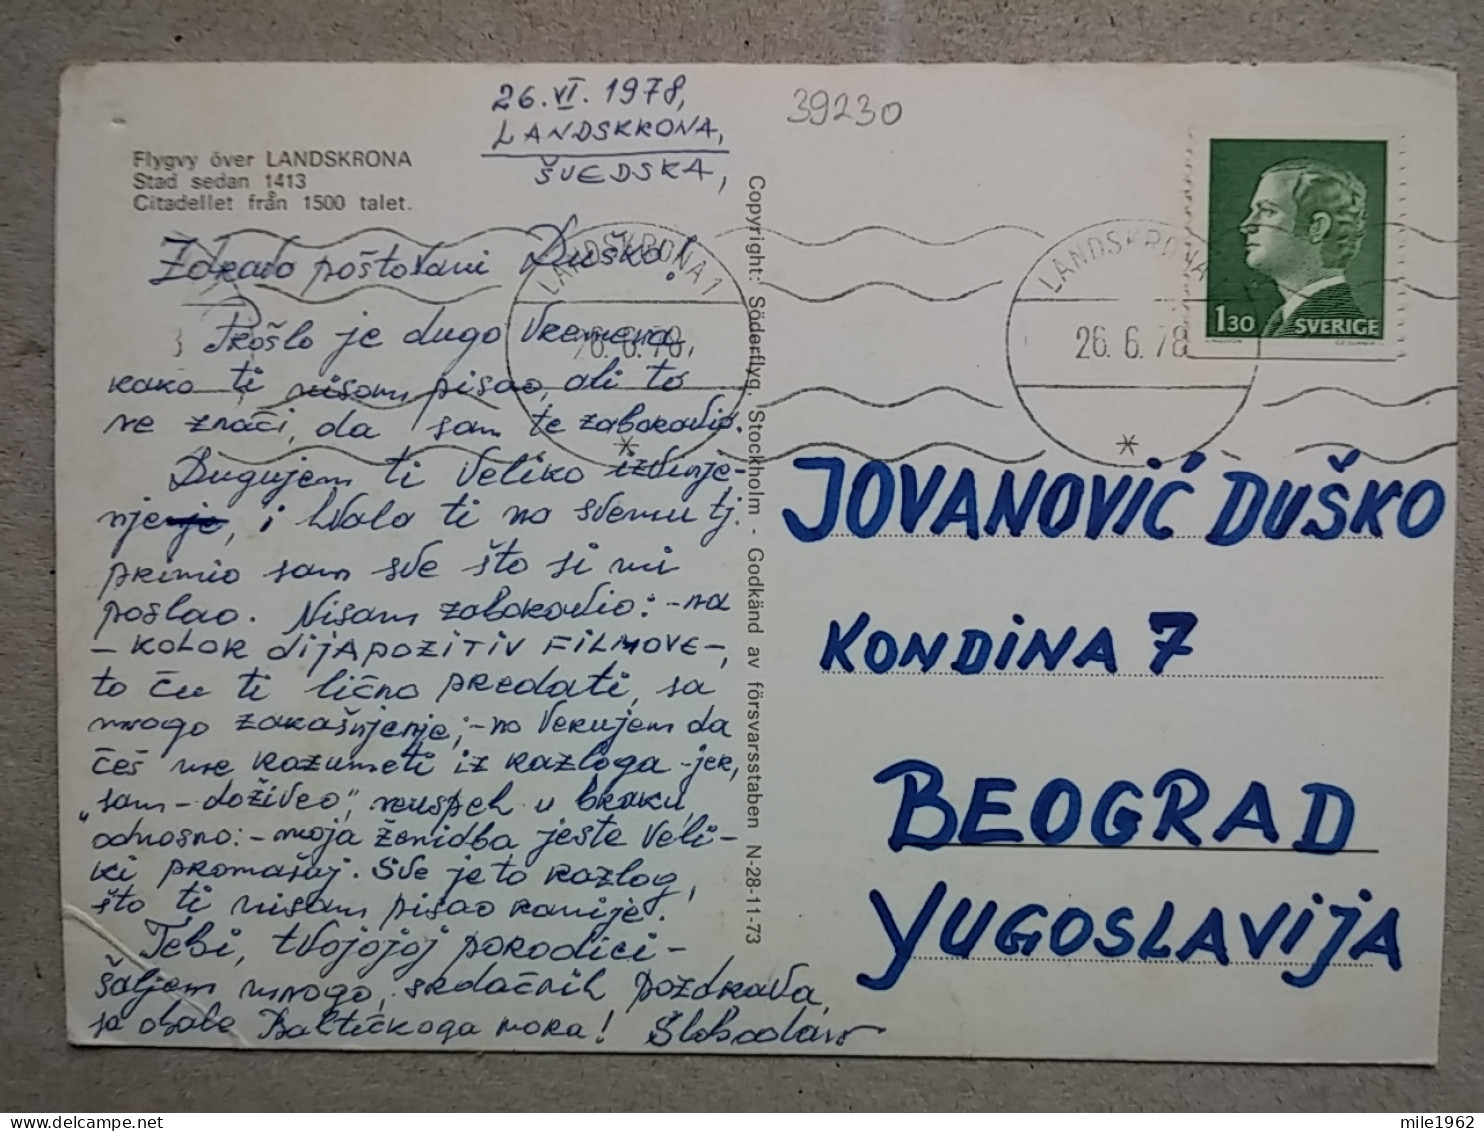 26. VI. 1978,
LANDSKRONA,
ŠVEDSKA,
39230
Flygvy över LANDSKRONA
Stad sedan 1413
Citadellet från 1500 talet.
Zdravo poštovani Duško!
Prošlo je dugo vremena,
kako ti nisam pisao, ali to
ne znači, da sam te zaboravio.
Dugujem ti veliko izvinje-
nje, i hvala ti na svemu tj.
primio sam sve što si mi
poslao. Nisam zaboravio: -na
- KOLOR DIJAPOZITIV FILMOVE -,
to ću ti lično predati, sa
mnogo zakašnjenje, - no verujem da
ćeš me razumeti iz razloga - jer,
"sam - doživeo", neuspeh u braku,
odnosno: - moja ženidba jeste veli-
ki promašaj. Sve je to razlog,
što ti nisam pisao ranije.
Tebi, tvojojoj porodici -
šaljem mnogo, srdačnih pozdrava,
sa obale Baltičkoga mora! Slobodan
Copyright: Söderflyg, Stockholm - Godkänd av försvarsstaben N-28-11-73
LANDSKRONA 1
26. 6. 78
LANDSKRONA
26. 6. 78
1.30 SVERIGE
JOVANOVIĆ DUŠKO
KONDINA 7
BEOGRAD
YUGOSLAVIJA
mile1962